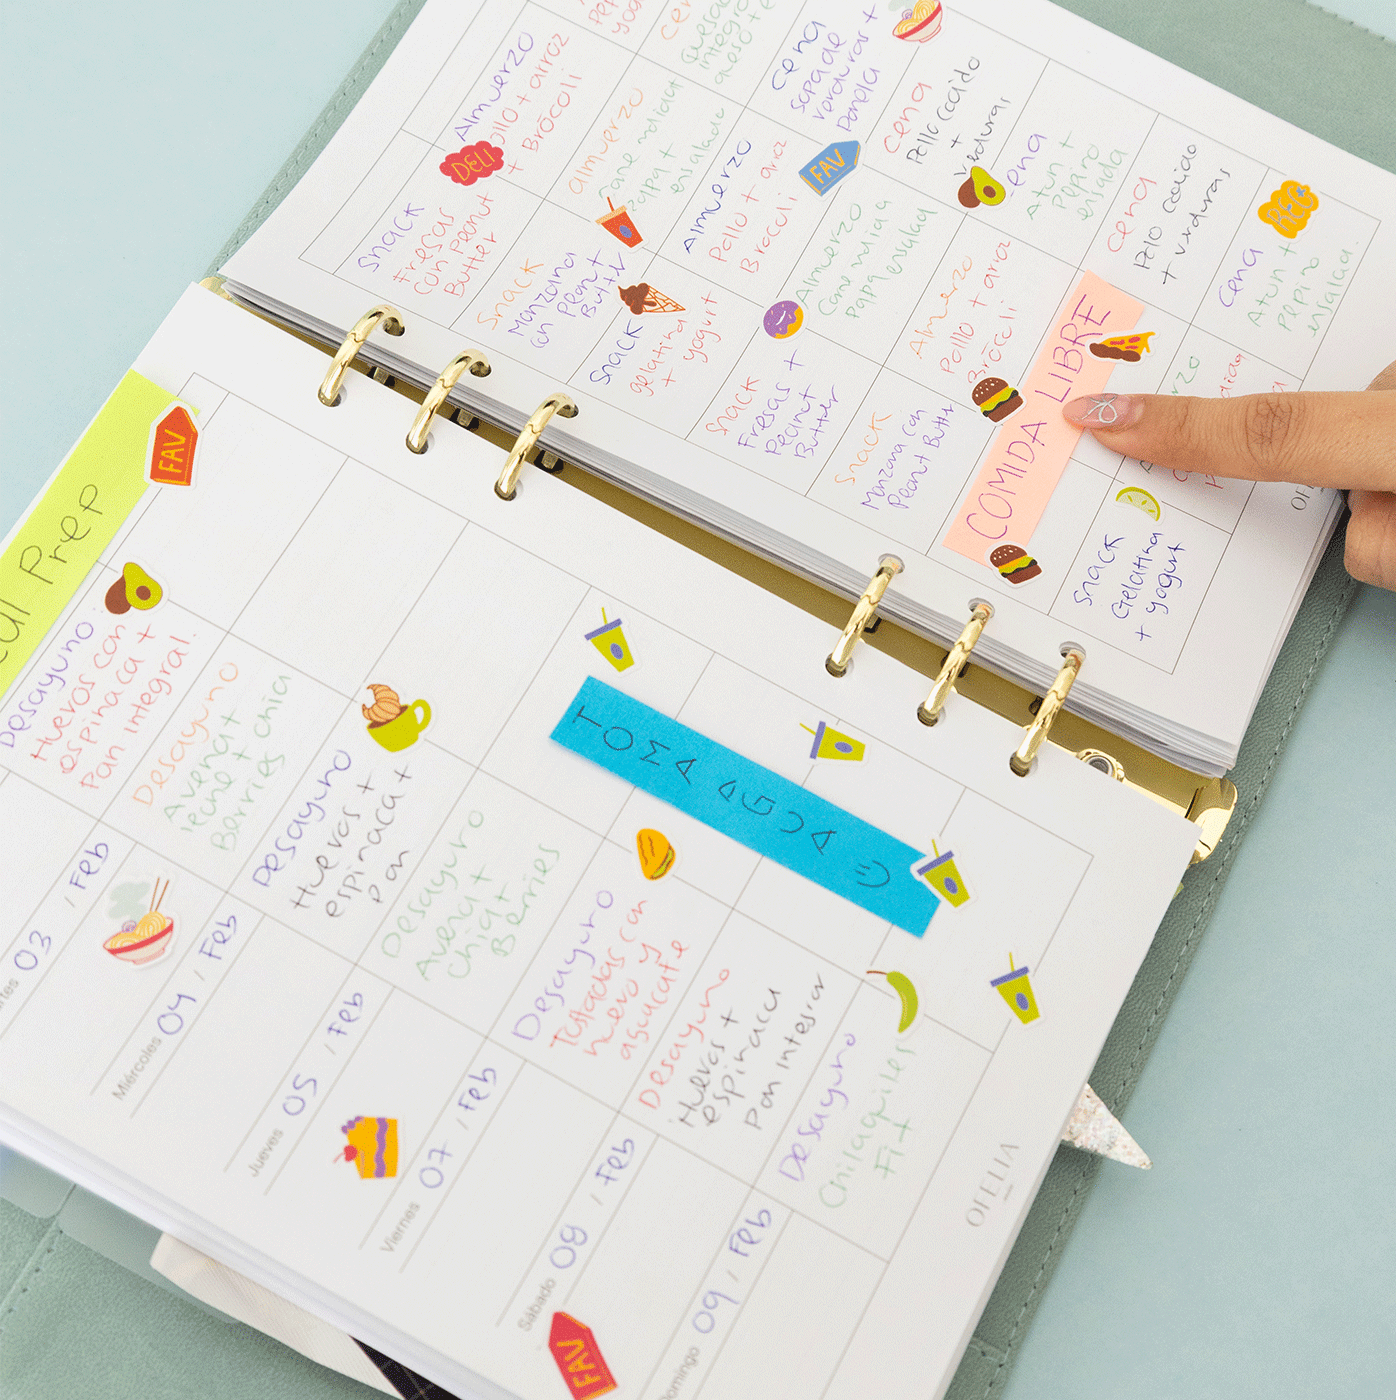 FAV
Prep
Desayuno
Huevos con
espinaca +
Pan integral.
Desayuno
Avena +
leche + chia
Berries
Desayuno
Huevos +
espinaca +
Pan
Desayuno
Avena +
chia +
Berries
Desayuno
Tostadas con
huevo y
aguacate
Desayuno
Huevos +
espinaca
Pan integar
Desayuno
Chilaquiles
Fit
TOMA AGUA
03, Feb
Miércoles 04, Feb
Jueves 05, Feb
Viernes 07, Feb
Sábado 08, Feb
09, Feb
FAV
OFELIA
Snack
Fresas
con Peanut
Butter
Snack
Manzana
con Peanut
Butter
Snack
gelatina
+ yogurt
Snack
Fresas +
Peanut
Butter
Snack
Manzana con
Peanut Butter
COMIDA LIBRE
Snack
Gelatina
+ yogurt
Almuerzo
Pollo + arroz
+ Bröcoli
DELI
Almuerzo
Carne molida
papa +
ensalada
Almuerzo
Pollo + arroz
Broccoli
Almuerzo
Carne molida
Papa ensalada
Almuerzo
Pollo + arroz
Bröcoli
Cena
Sopa de
verduras +
Panela
FAV
Cena
Pollo cocido
+
verduras
Cena
Atun +
Pepino
ensalada
Cena
Pollo cocido
+ verduras
Cena
Atun +
Pepino
enlalada